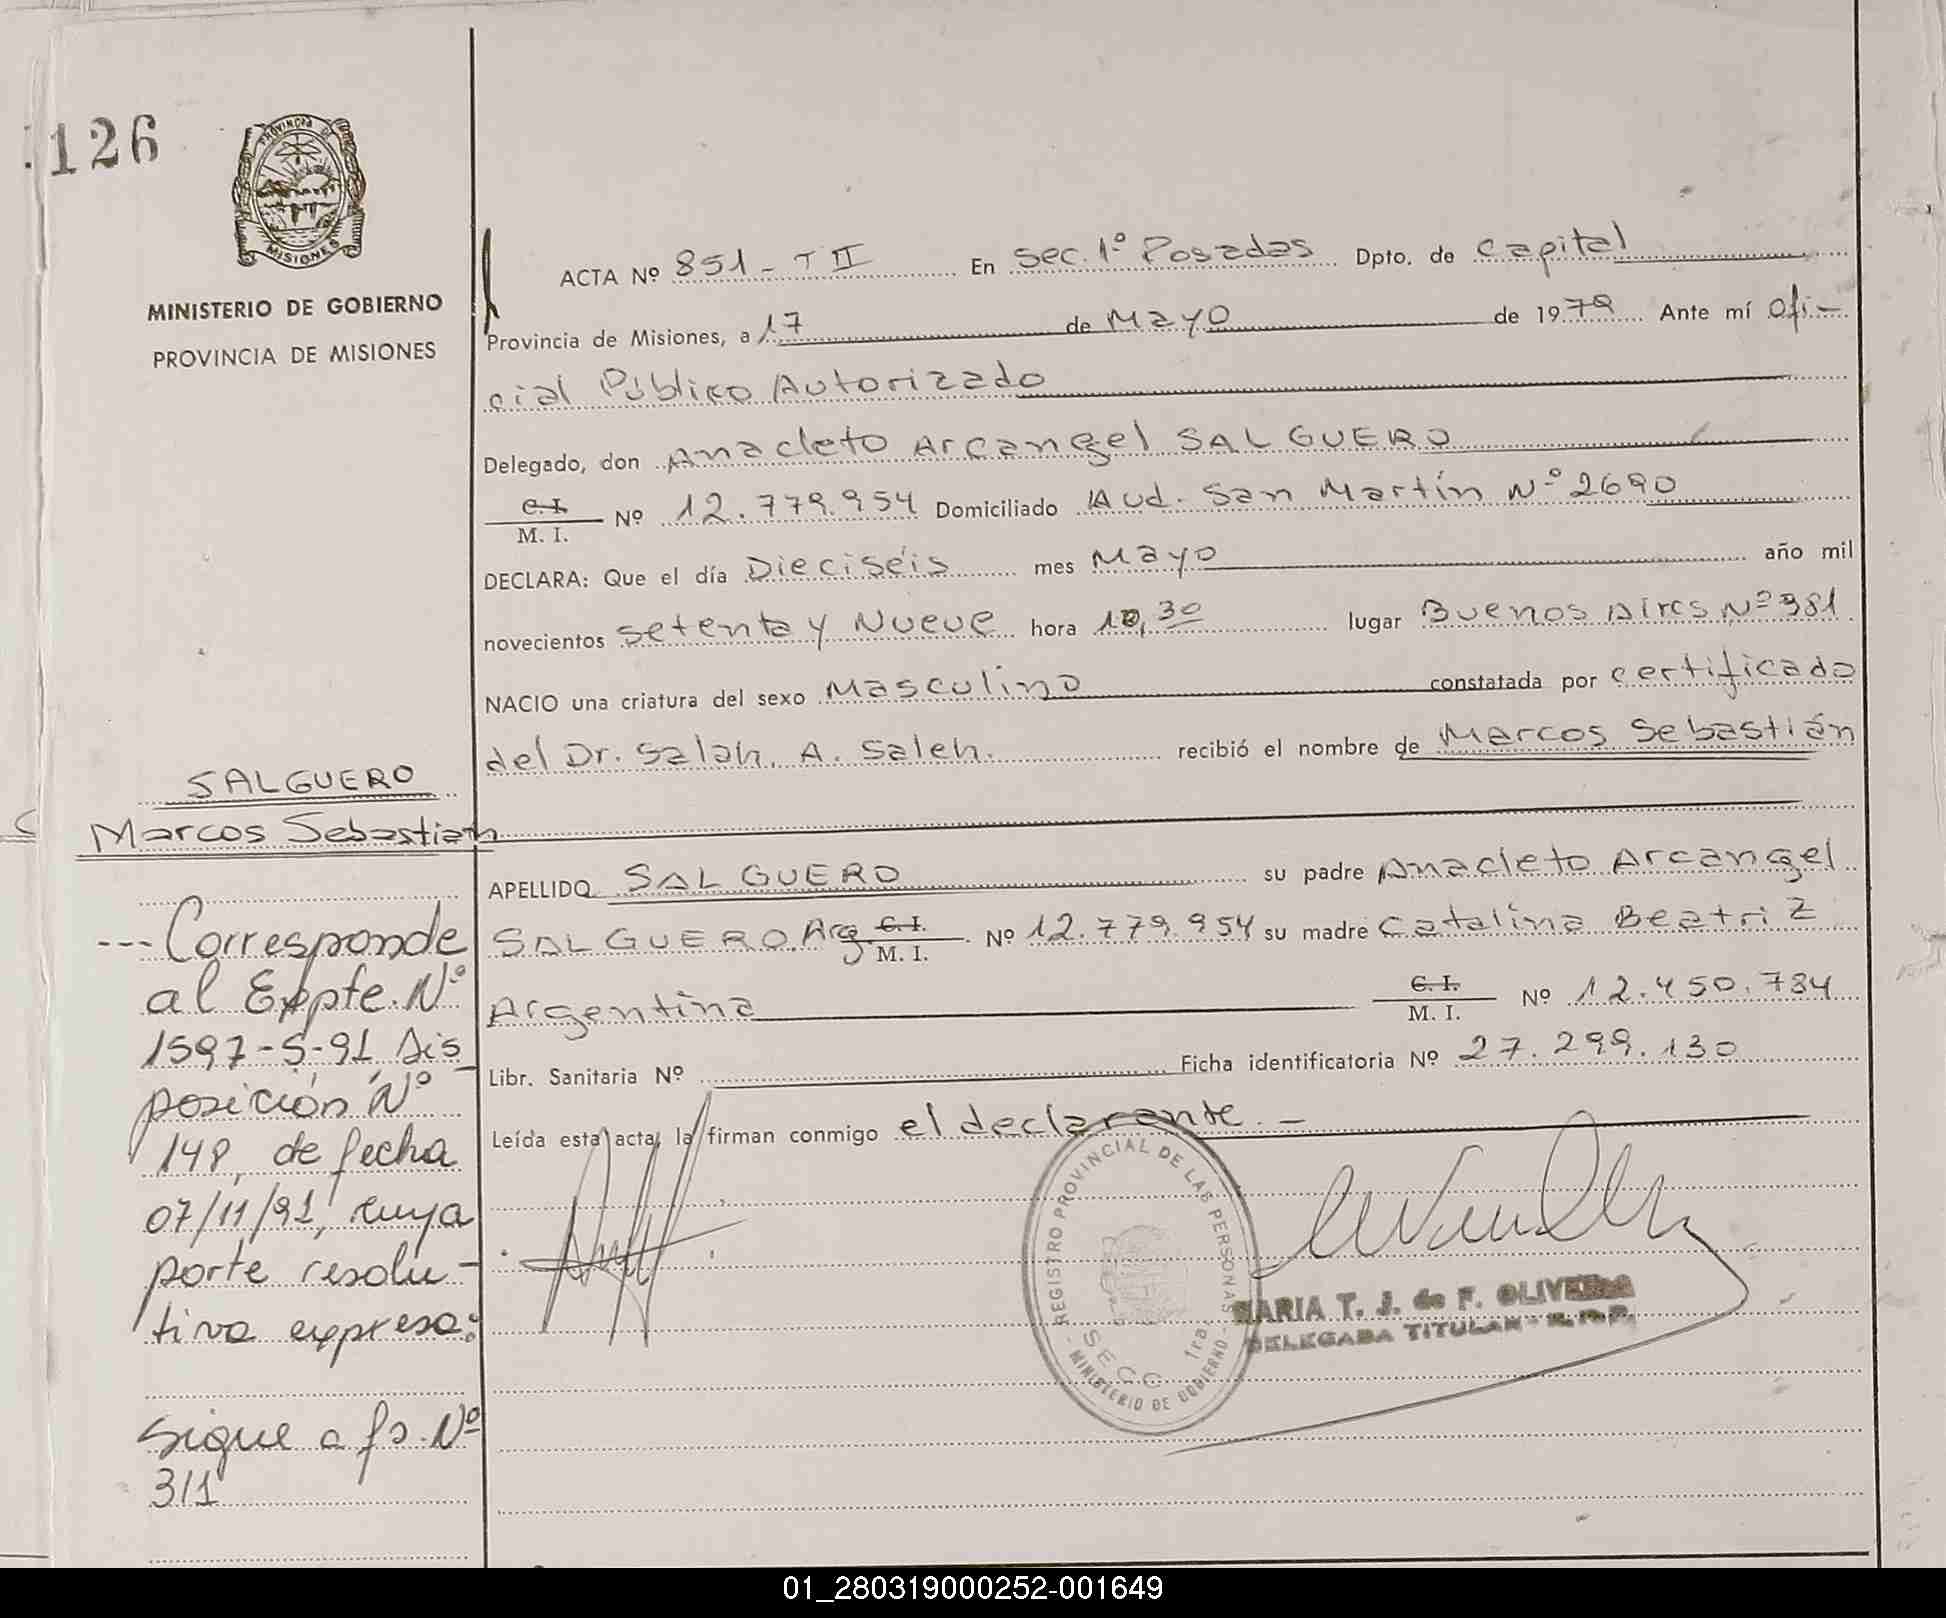 126
PROVINCIA DE
MISIONES
MINISTERIO DE GOBIERNO
PROVINCIA DE MISIONES
ACTA Nº 851 - T II En Sec. 1º Posadas Dpto. de Capital
Provincia de Misiones, a 17 de Mayo de 1979 Ante mí Ofi-
cial Público Autorizado
Delegado, don Anacleto Arcangel SALGUERO
C. I.
M. I. Nº 12.779.954 Domiciliado Avd. San Martín Nº 2690
DECLARA: Que el día Dieciséis mes Mayo año mil
novecientos setenta y Nueve hora 10,30 lugar Buenos Aires Nº 981
NACIO una criatura del sexo Masculino constatada por certificado
del Dr. Salah. A. Saleh. recibió el nombre de Marcos Sebastián
SALGUERO
Marcos Sebastian
APELLIDO SALGUERO su padre Anacleto Arcangel
SALGUERO Arg. C. I.
M. I. Nº 12.779.954 su madre Catalina Beatriz
Argentina C. I.
M. I. Nº 12.450.784
Libr. Sanitaria Nº Ficha identificatoria Nº 27.299.130
Leída esta acta, la firman conmigo el declarante. -
--- Corresponde
al Expte. Nº
1597-S-91 Dis
posición Nº
148, de fecha
07/11/91, cuya
parte resolu-
tiva expresa:
Sigue a fs. Nº
311
REGISTRO PROVINCIAL DE LAS PERSONAS
SECC. 1ra.
MINISTERIO DE GOBIERNO
MARIA T. J. de F. OLIVERA
DELEGADA TITULAR - R. P. P.
01_280319000252-001649